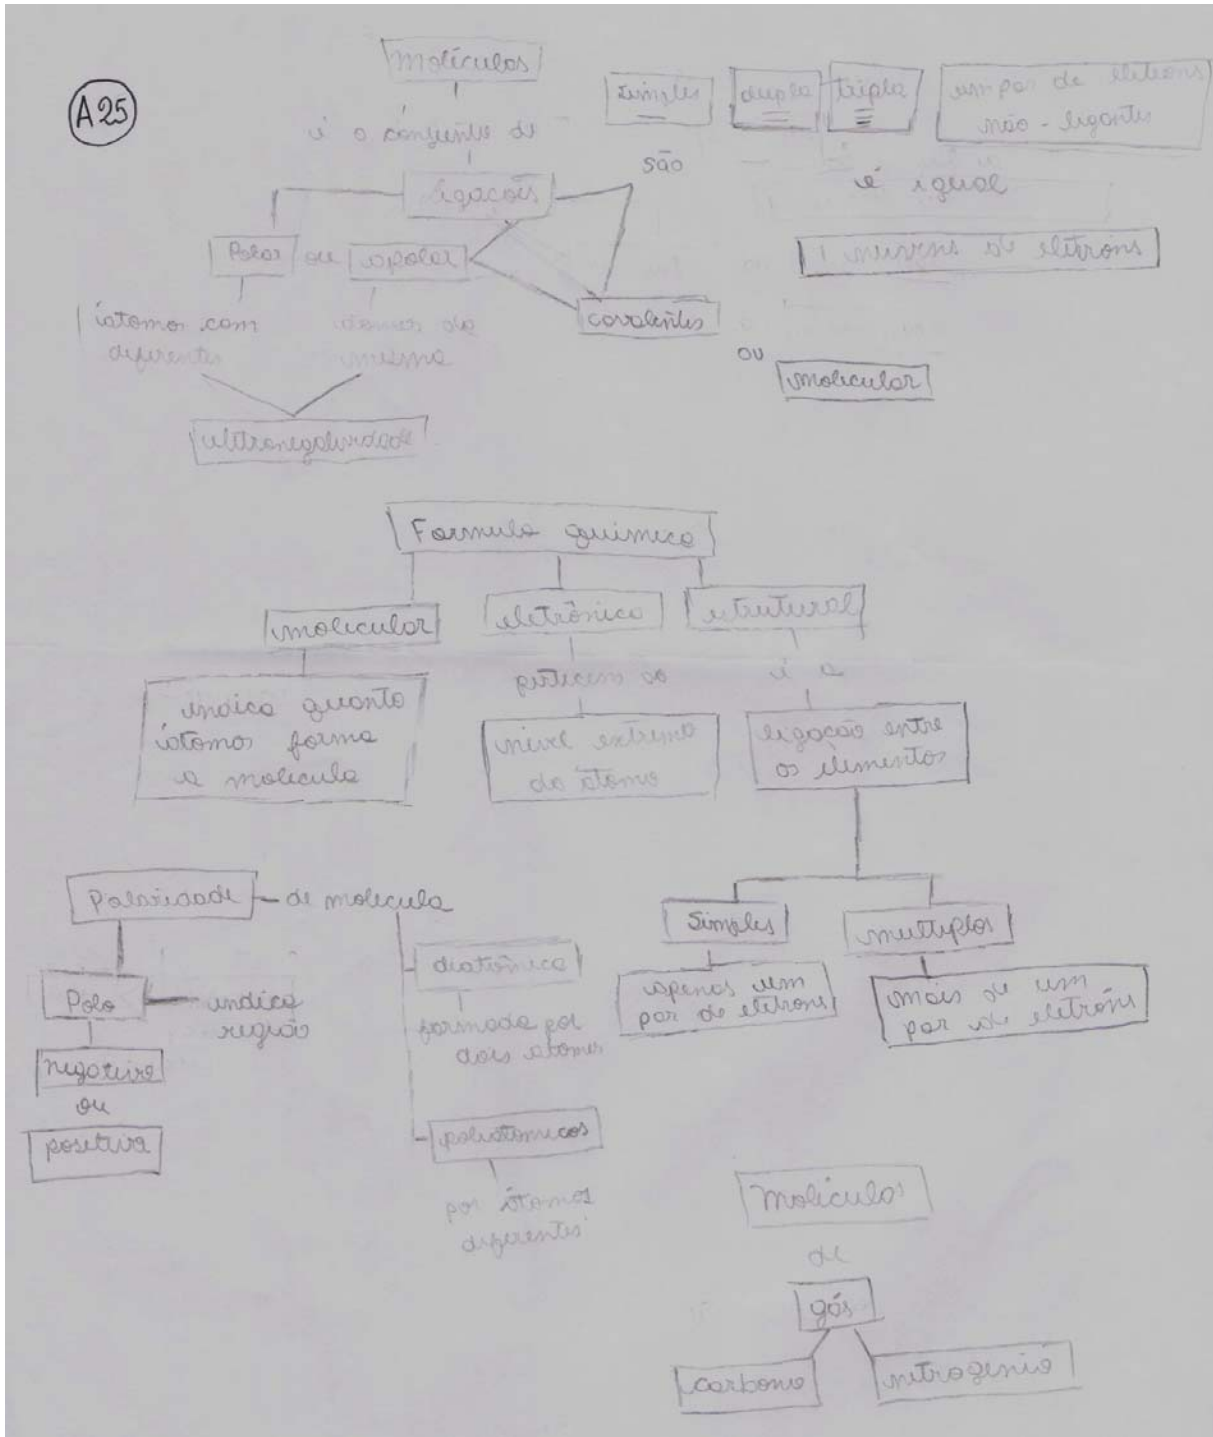 A25
Moléculas
é o conjunto de
ligações
Polar ou apolar
átomos com
diferentes
átomos da
mesma
eletronegatividade
são
covalentes
ou
molecular
simples
dupla
tripla
um par de eletrons
não-ligantes
é igual
1 nuvens de eletrons
Formula química
molecular
eletrônica
estrutural
indica quanto
átomos forma
a molecula
nível extremo
do átomo
é a
ligação entre
os elementos
Simples
apenas um
par de eletrons
multiplos
mais de um
par de eletrons
Polaridade de molecula
Polo
indica
região
negativo
ou
positivo
diatômica
formada por
dois atomos
poliatomicos
por átomos
diferentes
Moléculas
de
gás
carbono
nitrogenio